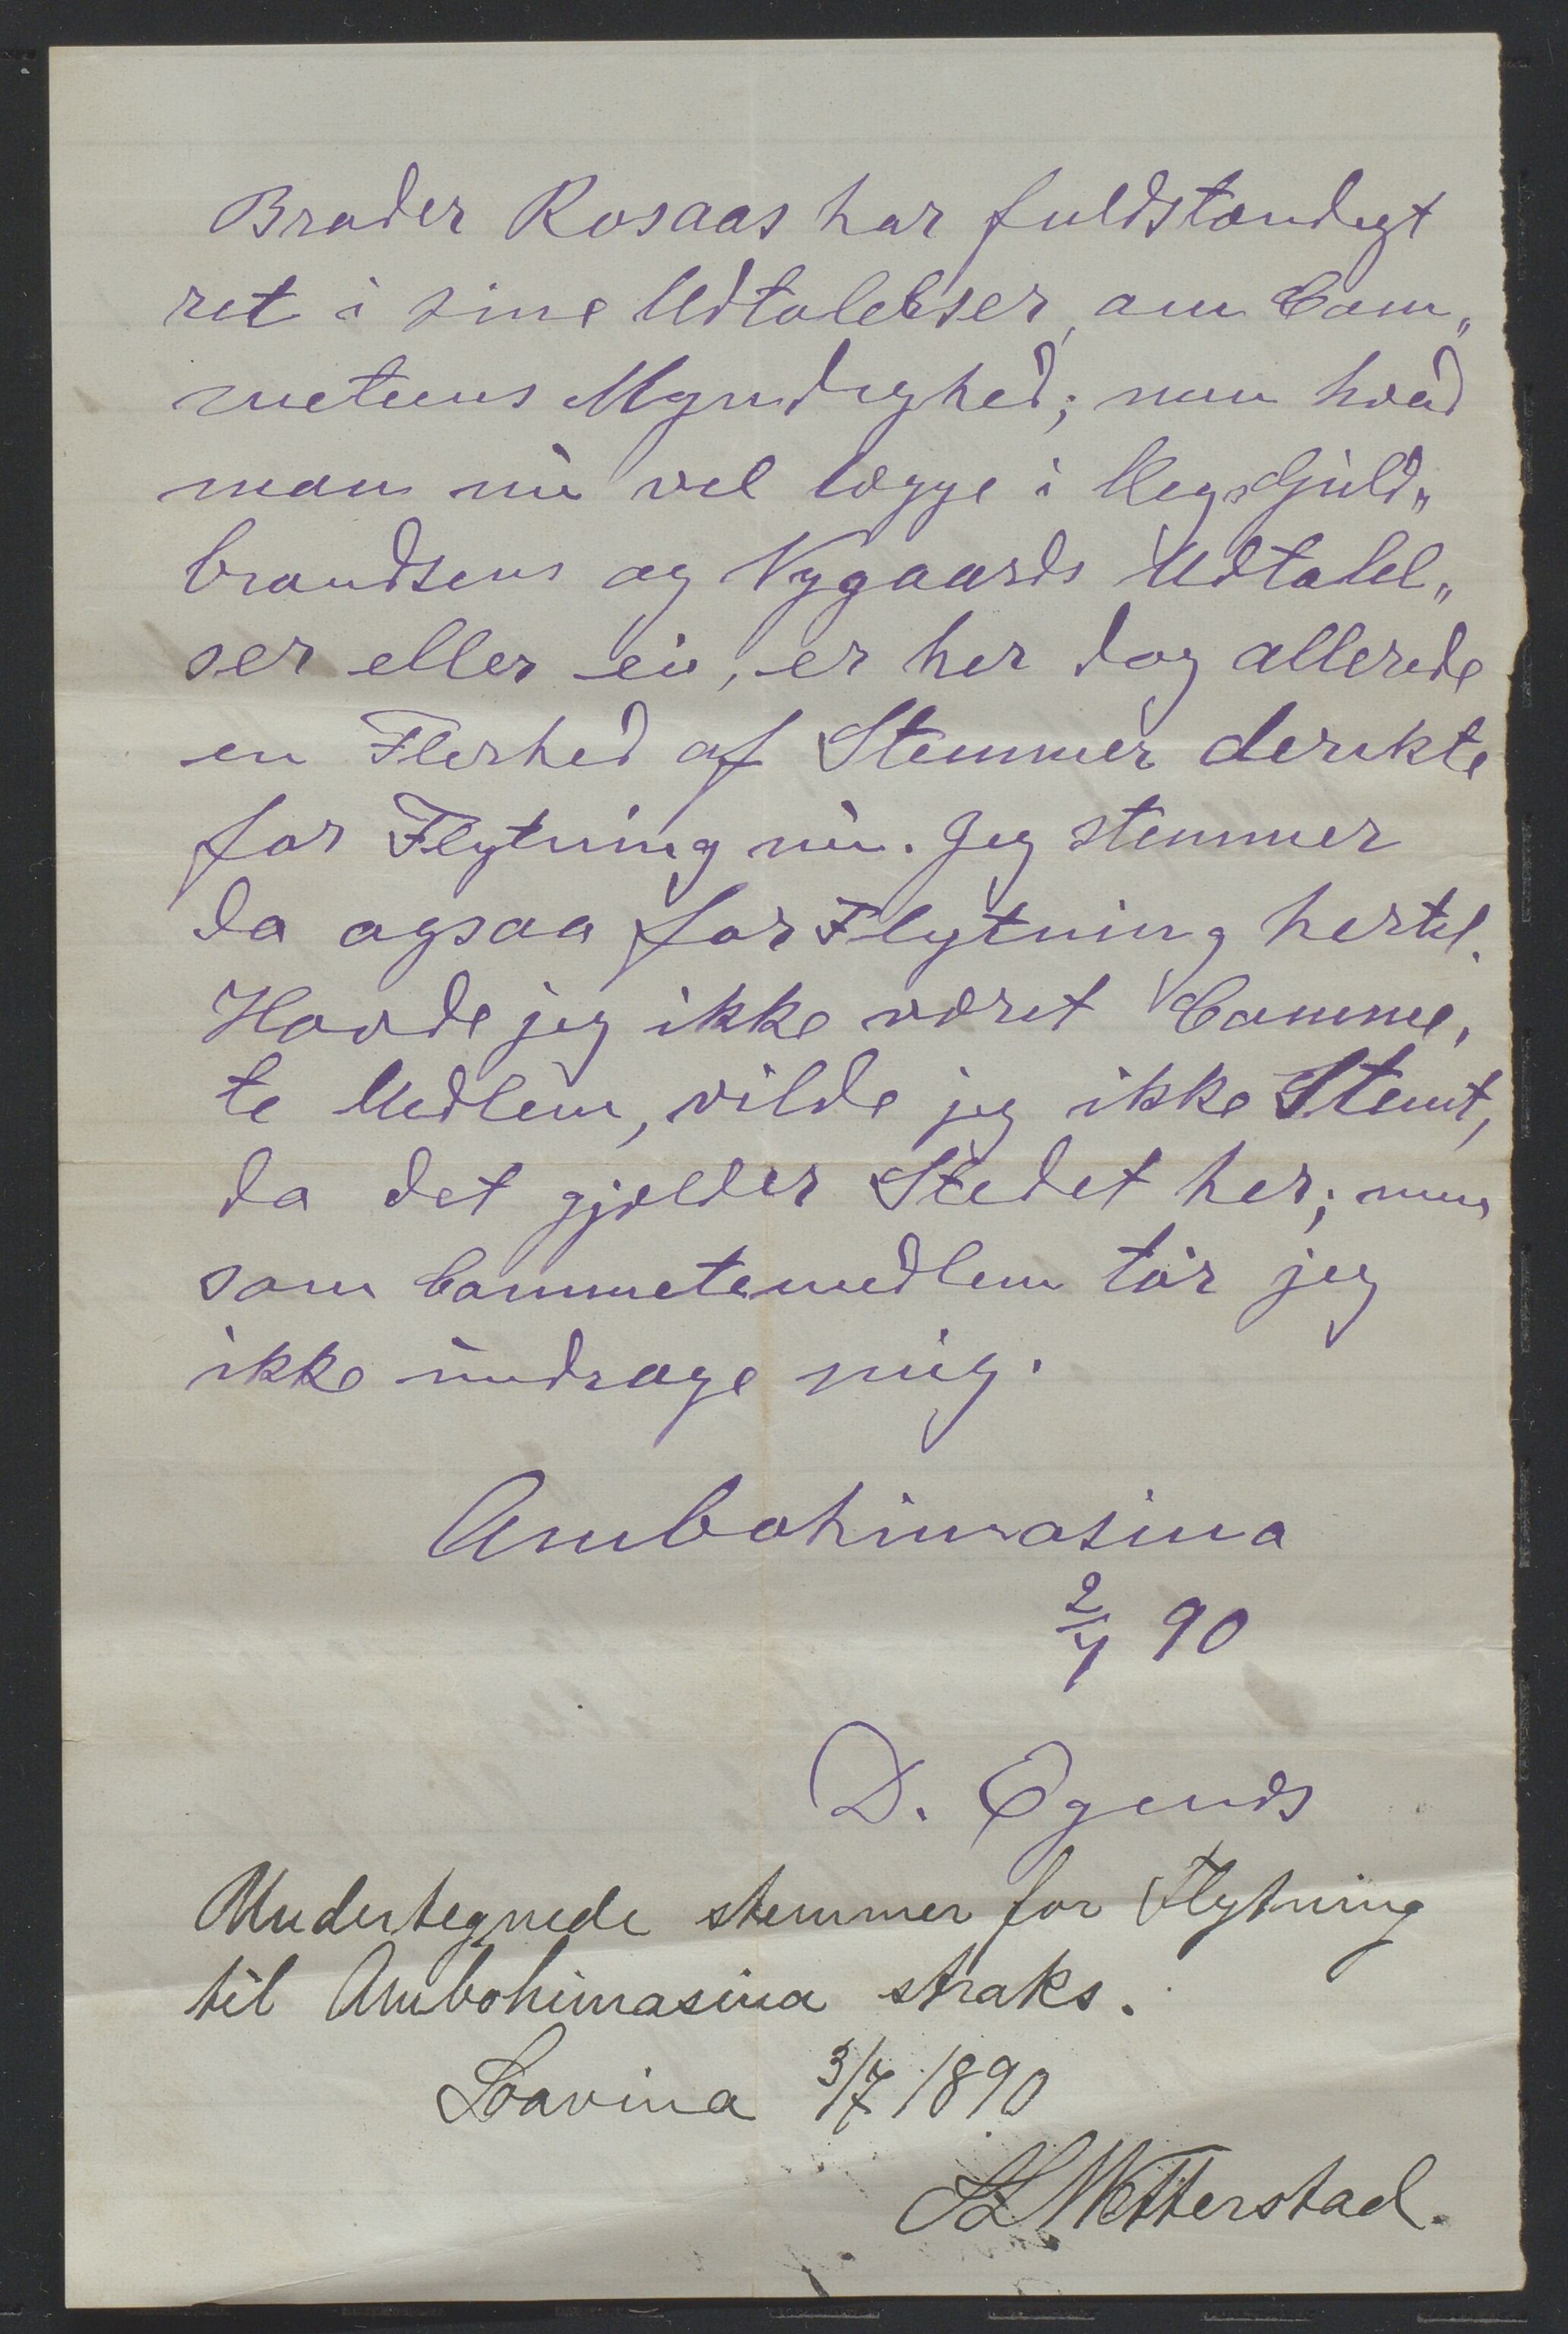 Broder Rosaas har fuldstændigt
ret i sine Udtalelser, om Com„
meteens Myndighed; men hvad
man nu vil lægge i Meg. Guld„
brandsens og Nygaards Udtalel„
ser eller ei, er her dog allerede
en Flerhed af Stemmer derekte
for Flytning nu. Jeg stemmer
da ogsaa for Flytning hertil.
Havde jeg ikke været Comme,
te Medlem, vilde jeg ikke Stemt,
da det gjælder Stedet her; men
som Commetemedlem tør jeg
ikke undrage mig.
Ambohimasina
2/7 90
D. Ogends
Undertegnede stemmer for Flytning
til Ambohimasina straks.
Soavina 3/7 1890
Wetterstad.